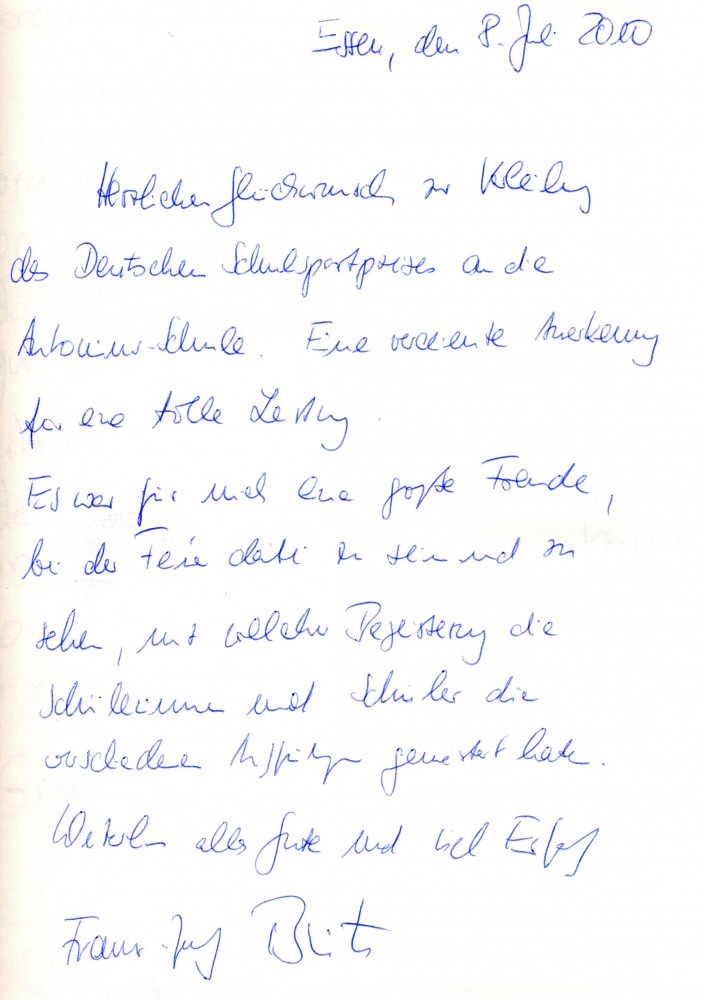 Essen, den 8. Juli 2010
Herzlichen Glückwunsch zur Verleihung
des Deutschen Schulsportpreises an die
Antonius-Schule. Eine verdiente Anerkennung
für eine tolle Leistung.
Es war für mich eine große Freude,
bei der Feier dabei zu sein und zu
sehen, mit welcher Begeisterung die
Schülerinnen und Schüler die
verschiedenen Aufführungen gemeistert haben.
Weiterhin alles Gute und viel Erfolg
Franz-Josef